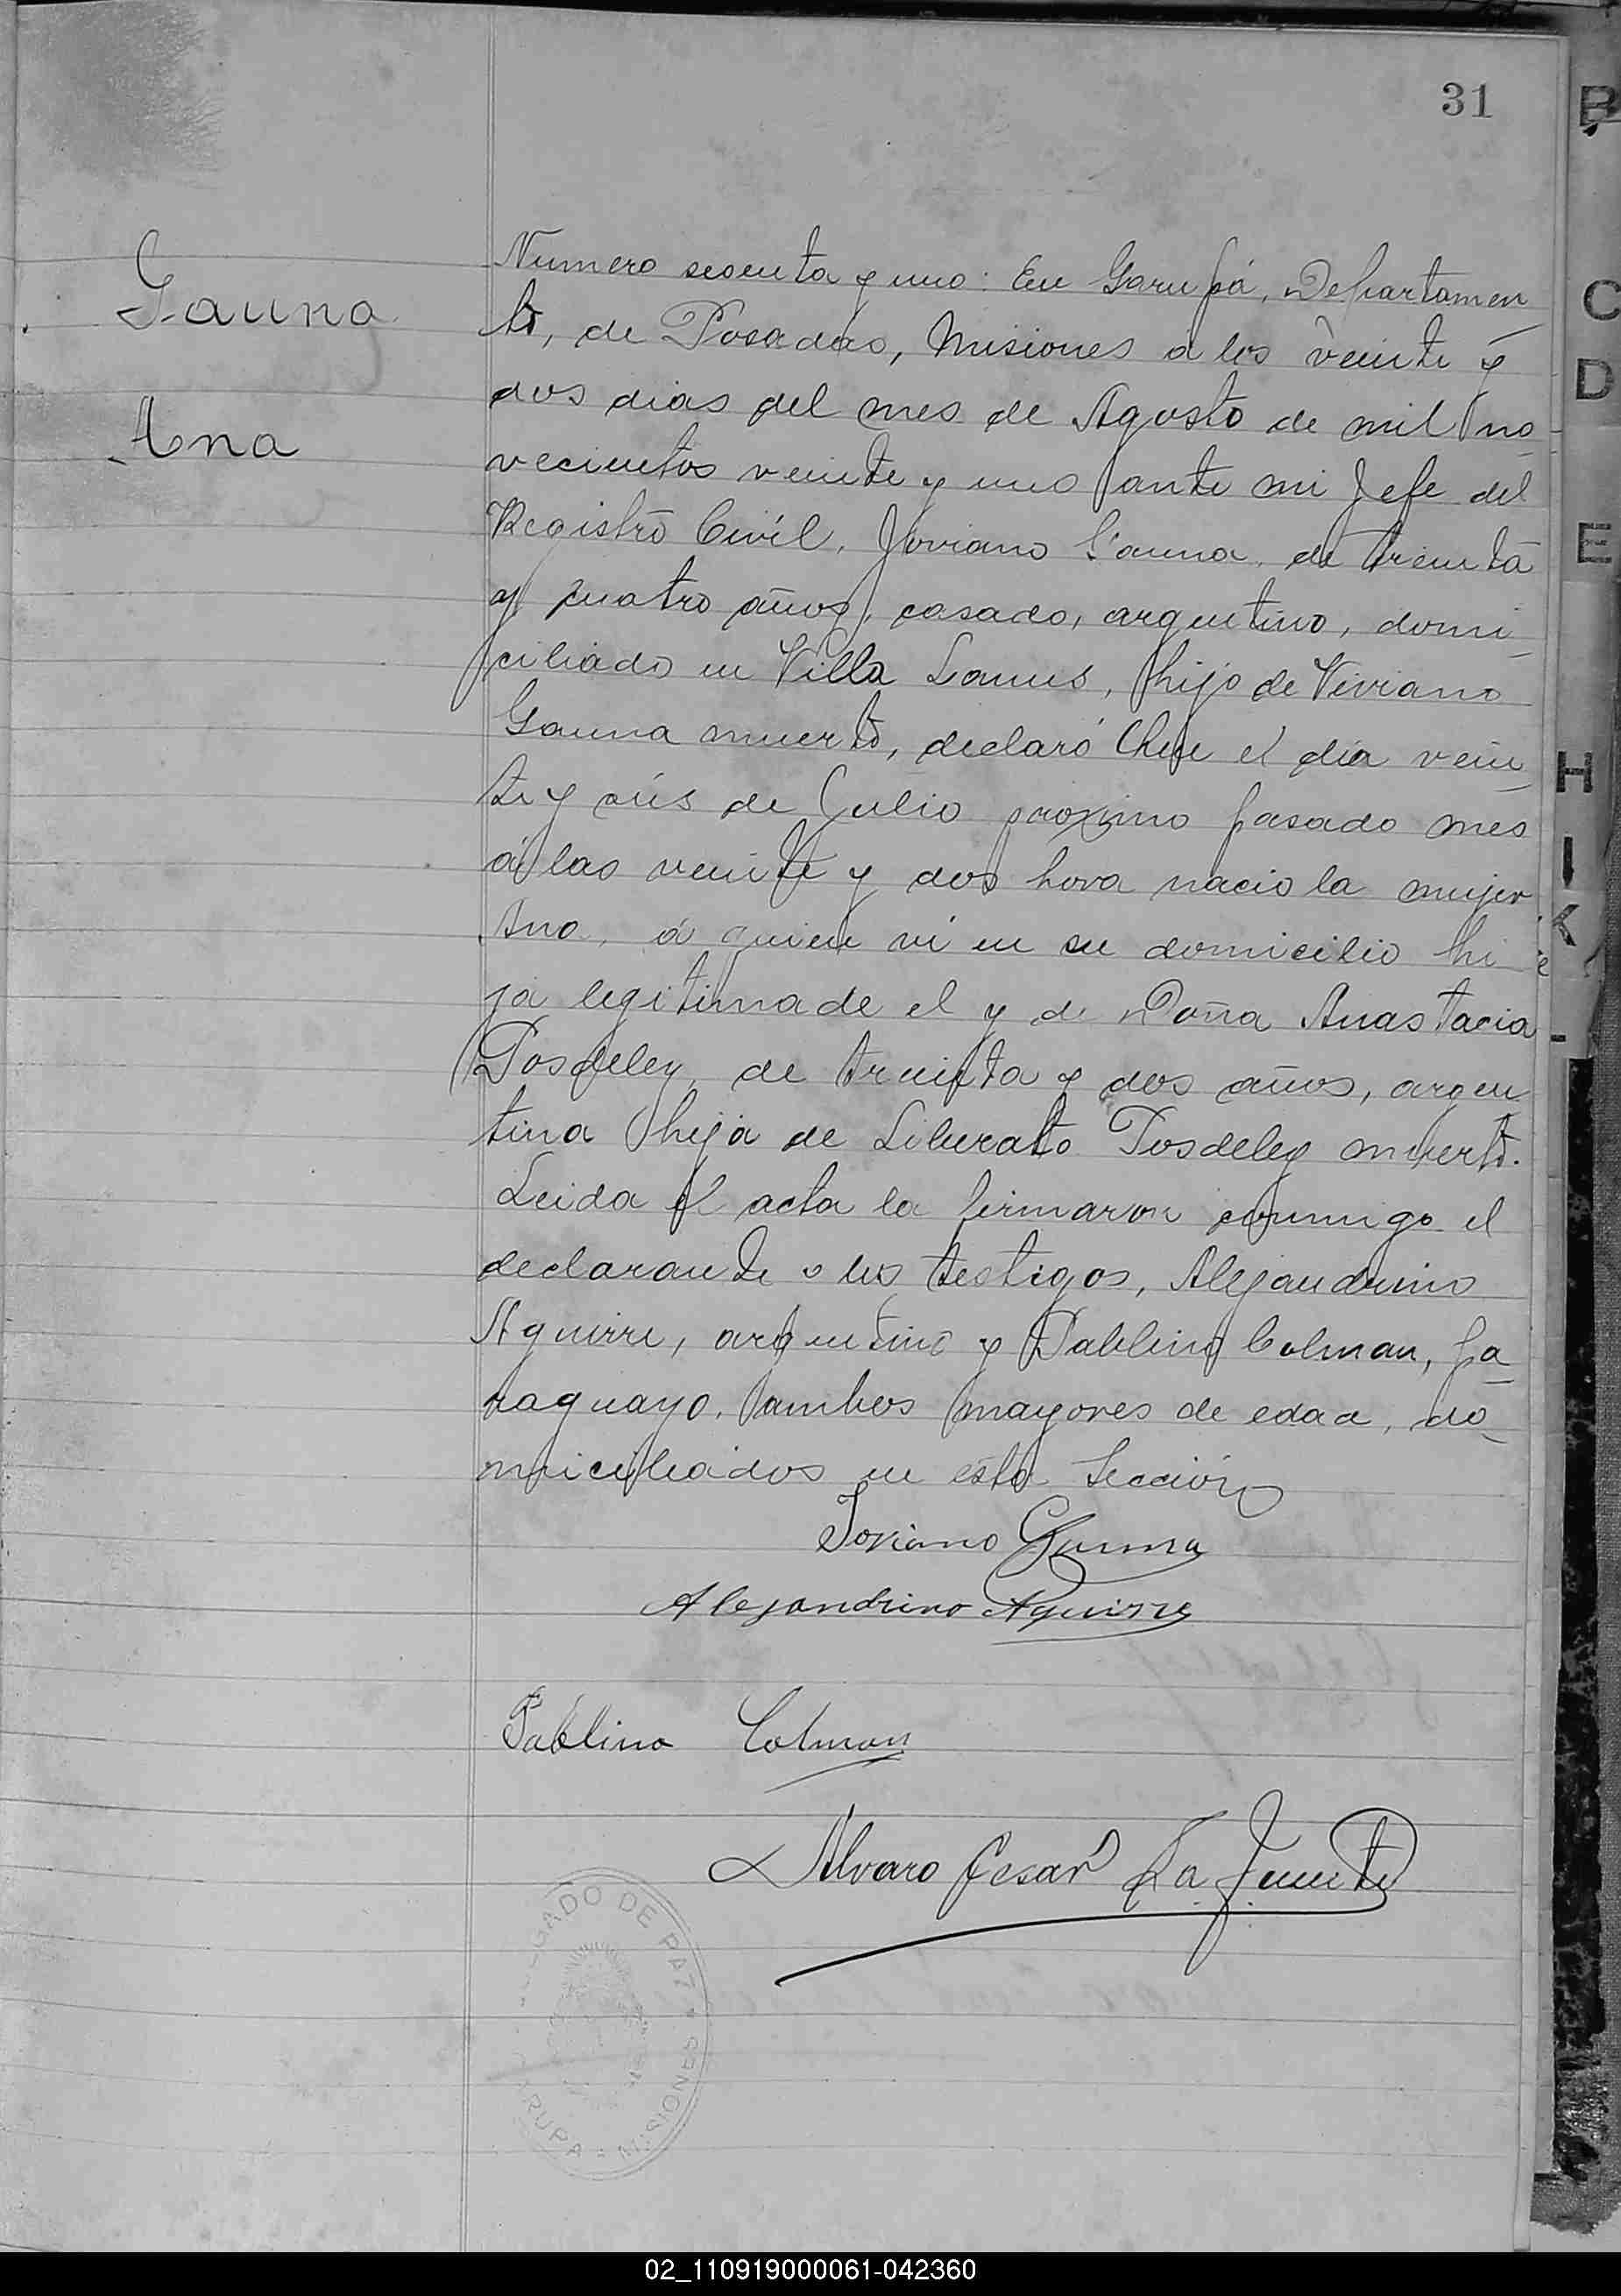 31
Gauna
Ana
Numero sesenta y uno: En Garupá, Departamen
to, de Posadas, Misiones á los veinte y
dos dias del mes de Agosto de mil no_
vecientos veinte y uno ante mi Jefe del
Registro Civil, Joviano Gauna, de treinta
y cuatro años, casado, argentino, domi_
ciliado en Villa Lanus, hijo de Viviano
Gauna muerto, declaró Que el dia vein_
te y seis de Julio proximo pasado mes
á las veinte y dos hora nacio la mujer
Ana, á quien vi en su domicilio hi
ja legitima de el y de Doña Anastacia
Posdeley, de treinta y dos años, argen
tina hija de Liberato Posdeley muerto.
Leida el acta la firmaron conmigo el
declarante y los testigos, Alejandrino
Aguirre, argentino y Pablino Colman, pa_
raguayo, ambos mayores de edad, do_
miciliados en esta Sección
Joviano Gauna
Alejandrino Aguirre
Pablino Colman
Alvaro Cesar La Fuente
DE PAZ
MISIONES
B
C
D
E
H
I
K
02_110919000061-042360